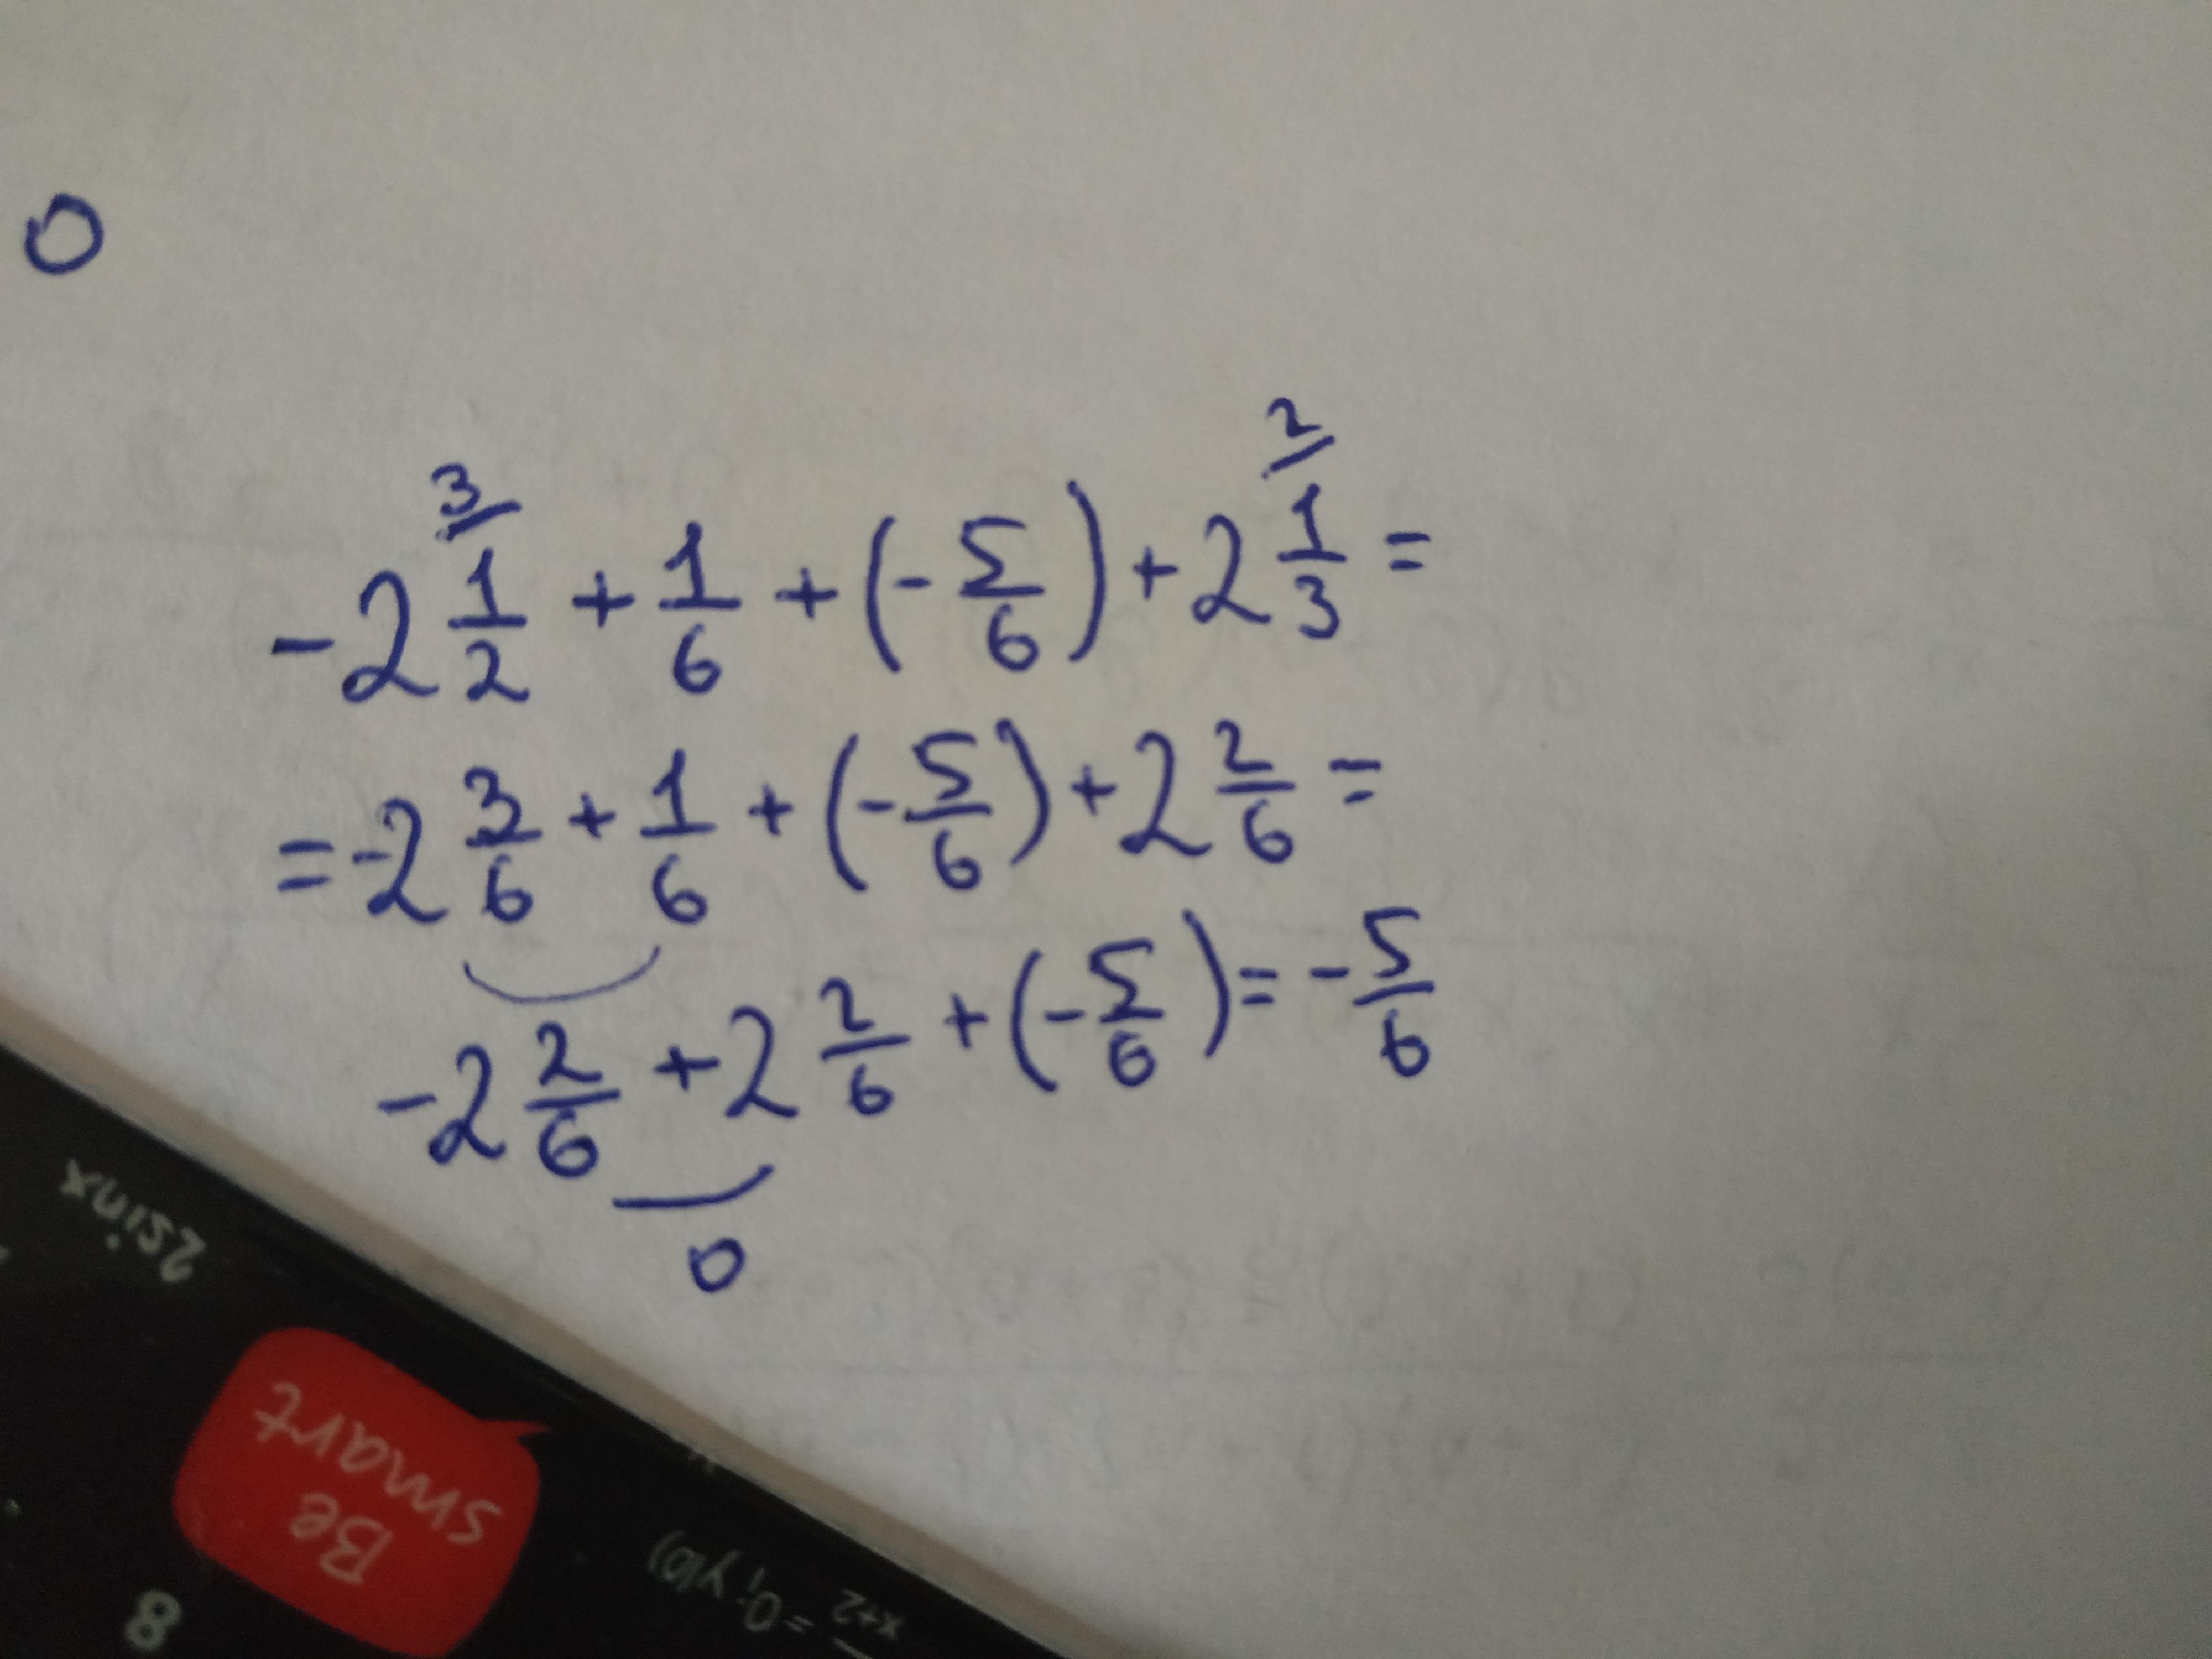 0
3/ 2/
-2 1/2 + 1/6 + (- 5/6) + 2 1/3 =
= -2 3/6 + 1/6 + (- 5/6) + 2 2/6 =
-2 2/6 + 2 2/6 + (- 5/6) = - 5/6
0
2sinx
Be
smart
x+2 = 0; y(0)
8